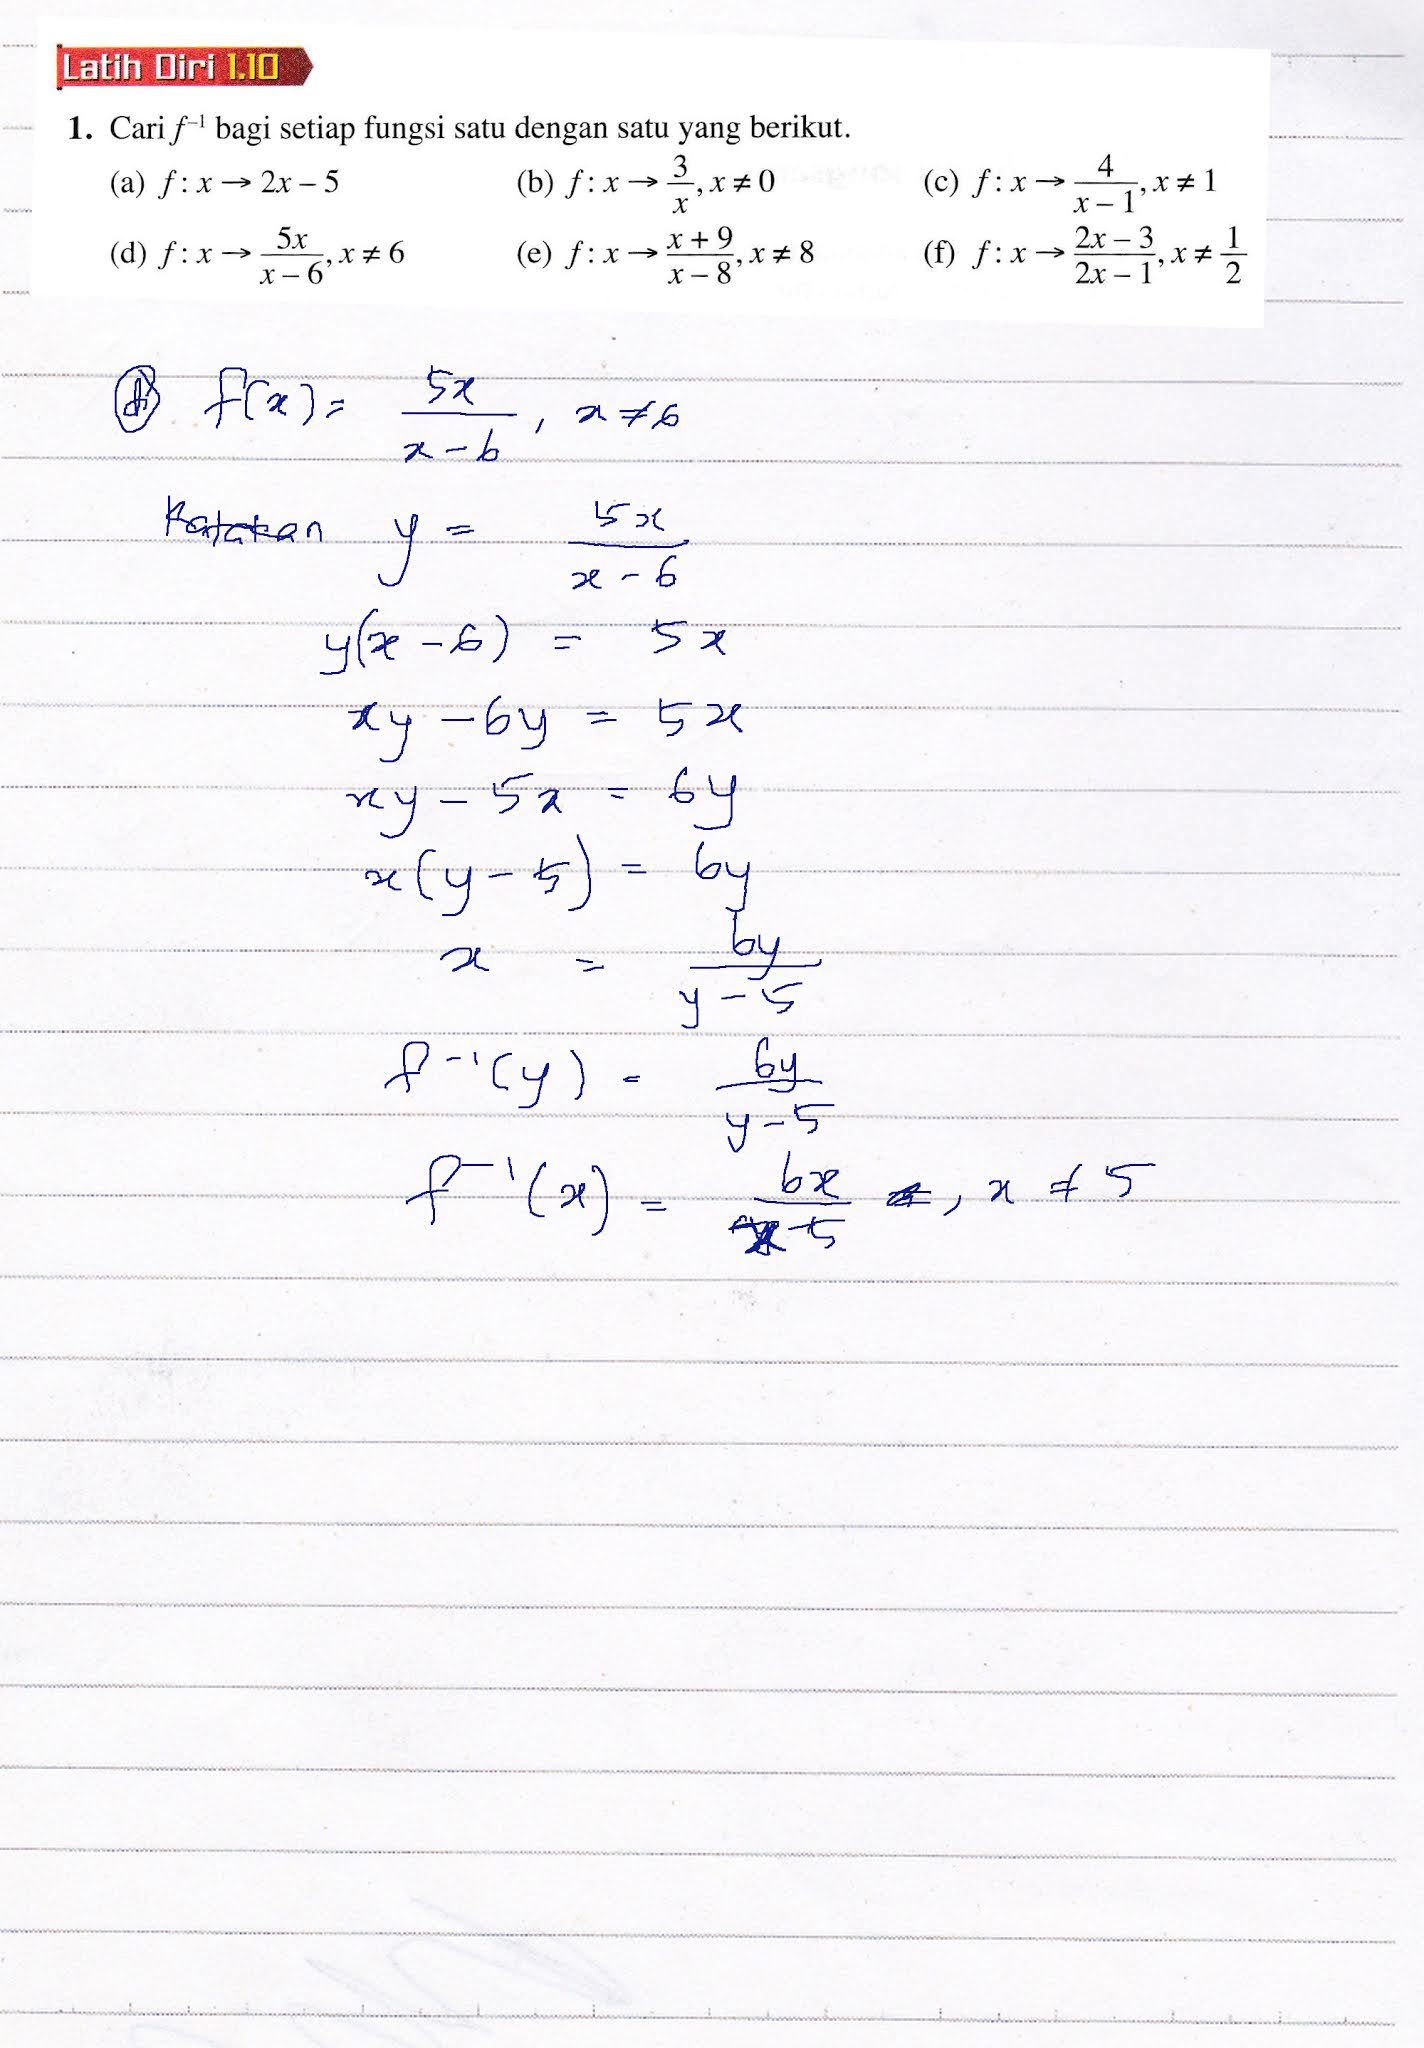 Latih Diri 1.10
1. Cari f⁻¹ bagi setiap fungsi satu dengan satu yang berikut.
(a) f : x → 2x – 5 (b) f : x → 3/x, x ≠ 0 (c) f : x → 4/(x – 1), x ≠ 1
(d) f : x → 5x/(x – 6), x ≠ 6 (e) f : x → (x + 9)/(x – 8), x ≠ 8 (f) f : x → (2x – 3)/(2x – 1), x ≠ 1/2
(d) f(x) = 5x/(x – 6), x ≠ 6
Katakan y = 5x/(x – 6)
y(x – 6) = 5x
xy – 6y = 5x
xy – 5x = 6y
x(y – 5) = 6y
x = 6y/(y – 5)
f⁻¹(y) = 6y/(y – 5)
f⁻¹(x) = 6x/(x – 5), x ≠ 5